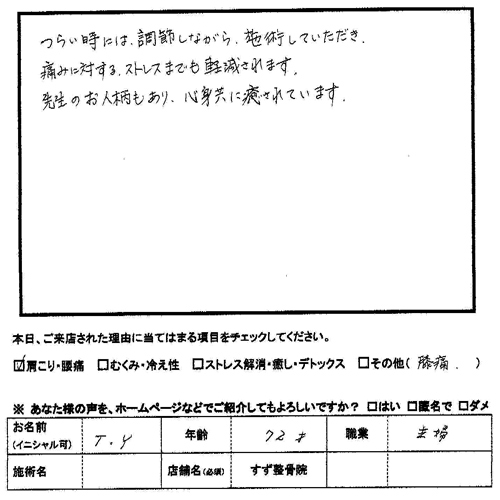 つらい時には、調節しながら、施術していただき、
痛みに対する、ストレスまでも軽減されます。
先生のお人柄もあり、心身共に癒されています。
本日、ご来店された理由に当てはまる項目をチェックしてください。
☑肩こり・腰痛 □むくみ・冷え性 □ストレス解消・癒し・デトックス □その他( 膝痛. )
※ あなた様の声を、ホームページなどでご紹介してもよろしいですか? □はい □匿名で □ダメ
お名前(イニシャル可) T.Y 年齢 72才 職業 主婦
施術名 店舗名(必須) すず整骨院